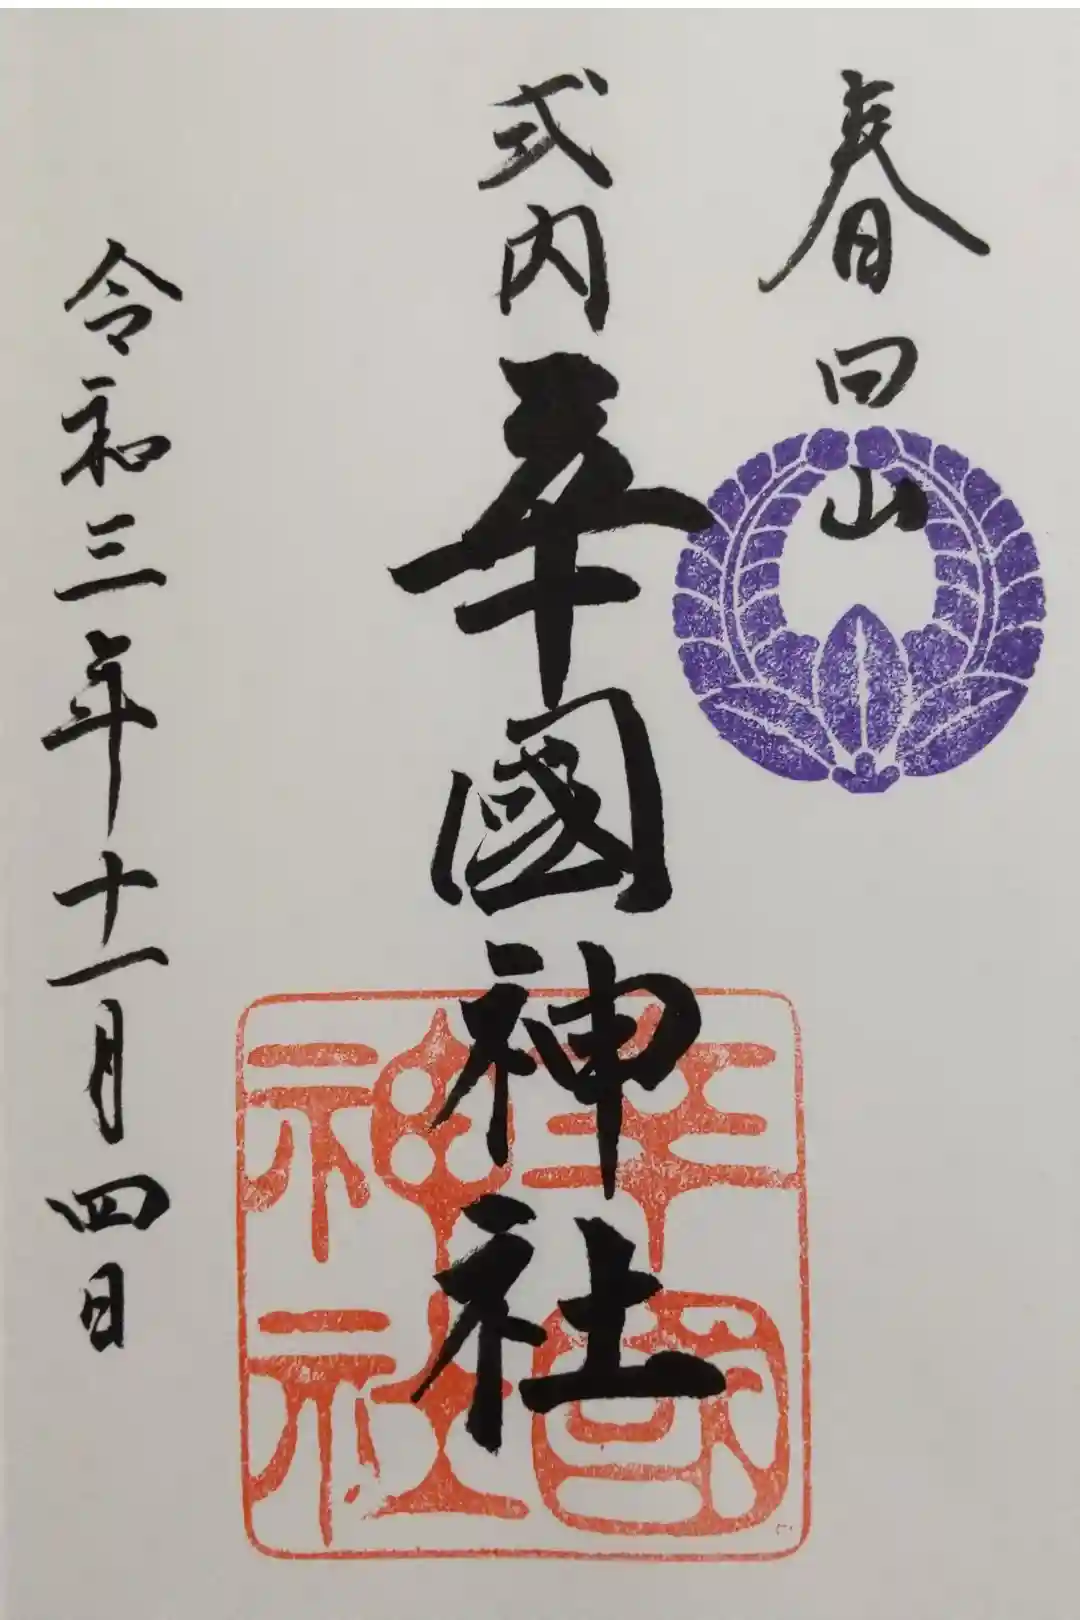 春日山
式内 辛國神社
令和三年十一月四日
辛國
神社